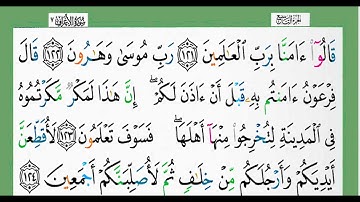 الجزء التاسع سورة الأعراف ٧
قَالُوٓا۟ ءَامَنَّا بِرَبِّ الْعَٰلَمِينَ ١٢١ رَبِّ مُوسَىٰ وَهَٰرُونَ ١٢٢ قَالَ
فِرْعَوْنُ ءَامَنتُم بِهِۦ قَبْلَ أَنْ ءَاذَنَ لَكُمْ ۖ إِنَّ هَٰذَا لَمَكْرٌ مَّكَرْتُمُوهُ
فِى الْمَدِينَةِ لِتُخْرِجُوا۟ مِنْهَآ أَهْلَهَا ۖ فَسَوْفَ تَعْلَمُونَ ١٢٣ لَأُقَطِّعَنَّ
أَيْدِيَكُمْ وَأَرْجُلَكُم مِّنْ خِلَٰفٍ ثُمَّ لَأُصَلِّبَنَّكُمْ أَجْمَعِينَ ١٢٤